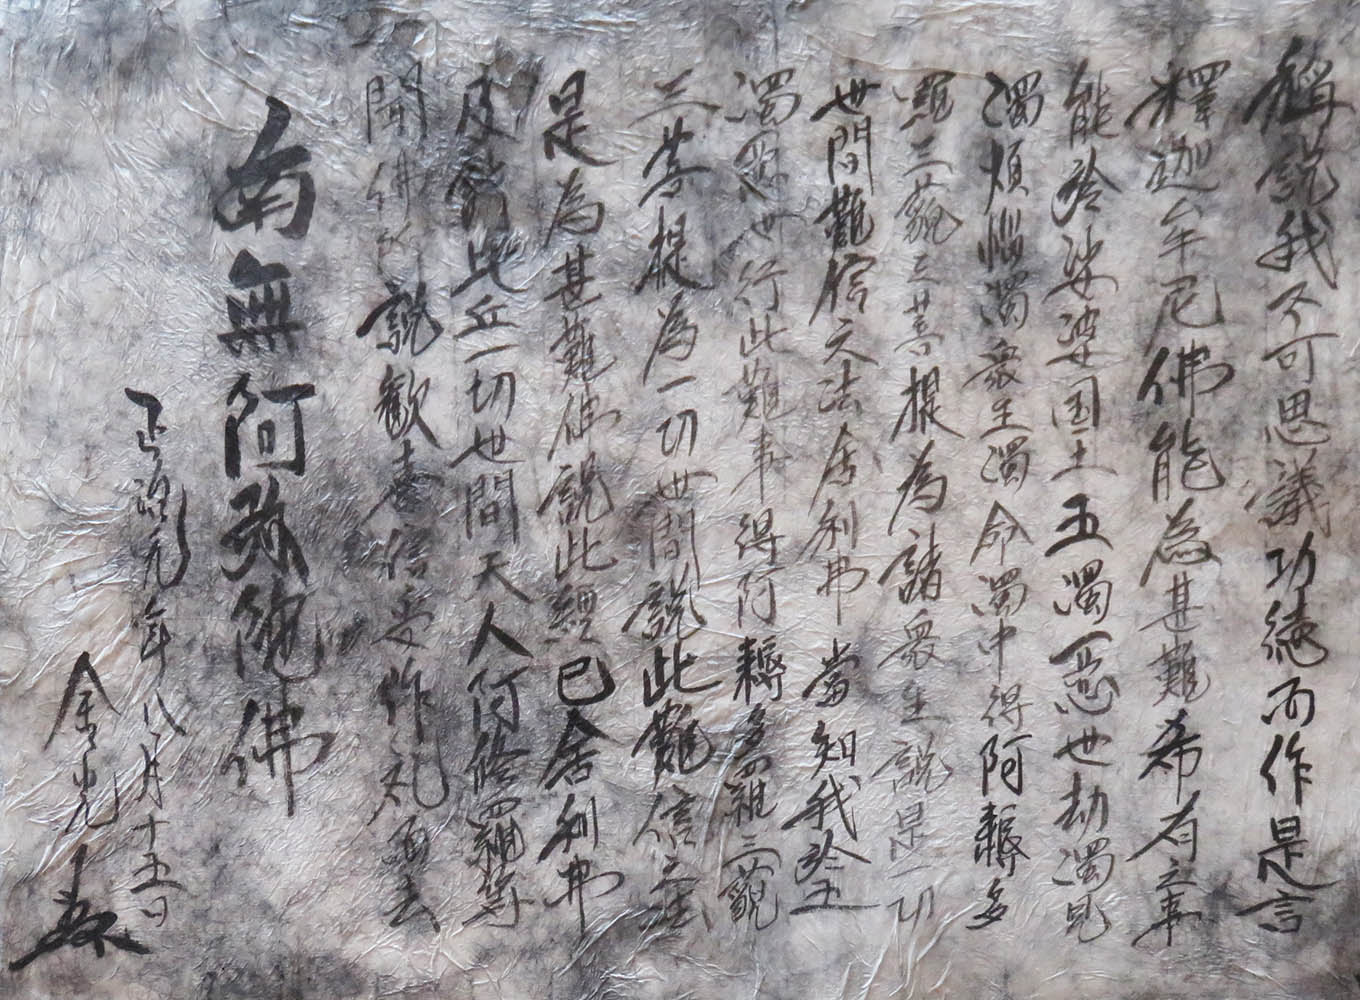 稱説我不可思議功徳而作是言
釋迦牟尼佛能為甚難希有之事
能於娑婆国土五濁惡世劫濁見
濁煩惱濁衆生濁命濁中得阿耨多
羅三藐三菩提為諸衆生説是一切
世間難信之法舎利弗當知我於五
濁惡世行此難事得阿耨多羅三藐
三菩提為一切世間説此難信之法
是為甚難佛説此經已舎利弗
及諸比丘一切世間天人阿修羅等
聞佛所説歡喜信受作礼而去
南無阿弥陀佛
元年八月十五日